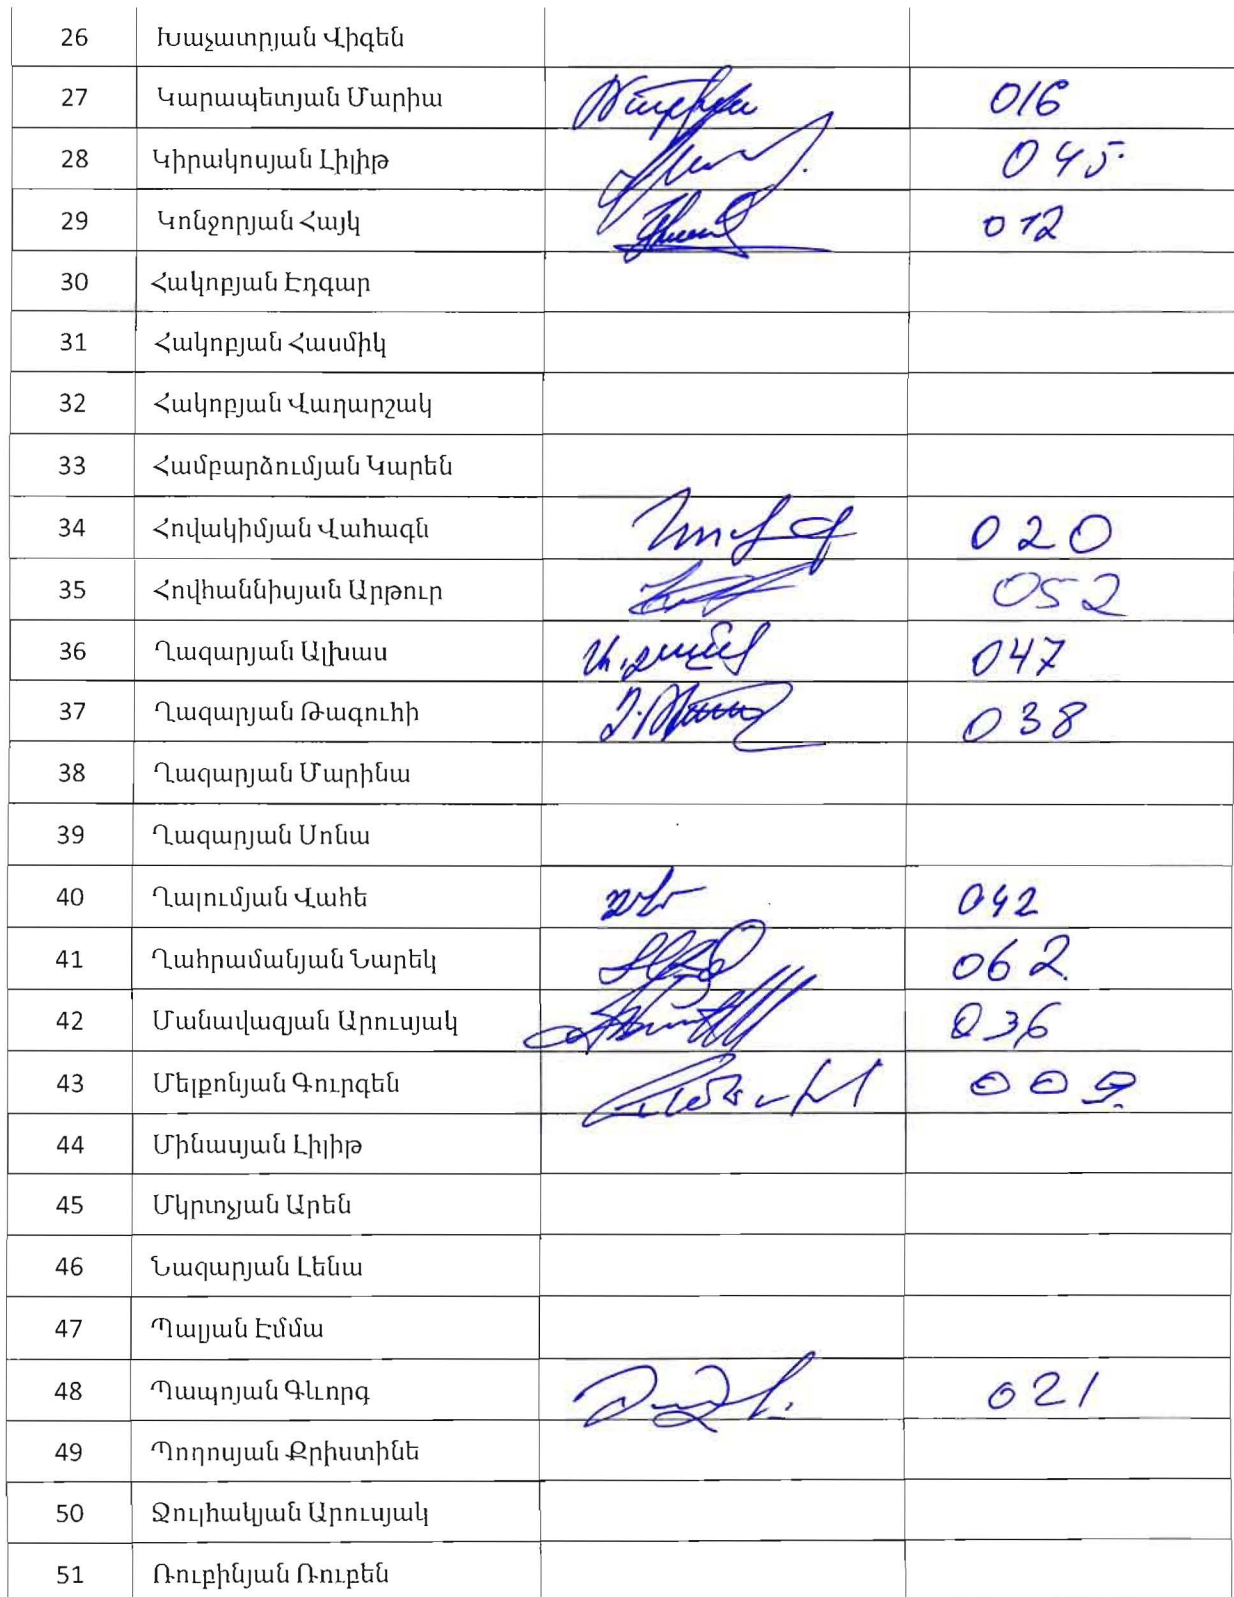 26 Խաչատրյան Վիգեն
27 Կարապետյան Մարիա 016
28 Կիրակոսյան Լիլիթ 045
29 Կոնջորյան Հայկ 012
30 Հակոբյան Էդգար
31 Հակոբյան Հասմիկ
32 Հակոբյան Վաղարշակ
33 Համբարձումյան Կարեն
34 Հովակիմյան Վահագն 020
35 Հովհաննիսյան Արթուր 052
36 Ղազարյան Ալխաս 047
37 Ղազարյան Թագուհի 038
38 Ղազարյան Մարինա
39 Ղազարյան Սոնա
40 Ղալումյան Վահե 042
41 Ղահրամանյան Նարեկ 062
42 Մանավազյան Արուսյակ 036
43 Մելքոնյան Գուրգեն 009
44 Մինասյան Լիլիթ
45 Մկրտչյան Արեն
46 Նազարյան Լենա
47 Պալյան Էմմա
48 Պապոյան Գևորգ 021
49 Պողոսյան Քրիստինե
50 Ջուլհակյան Արուսյակ
51 Ռուբինյան Ռուբեն